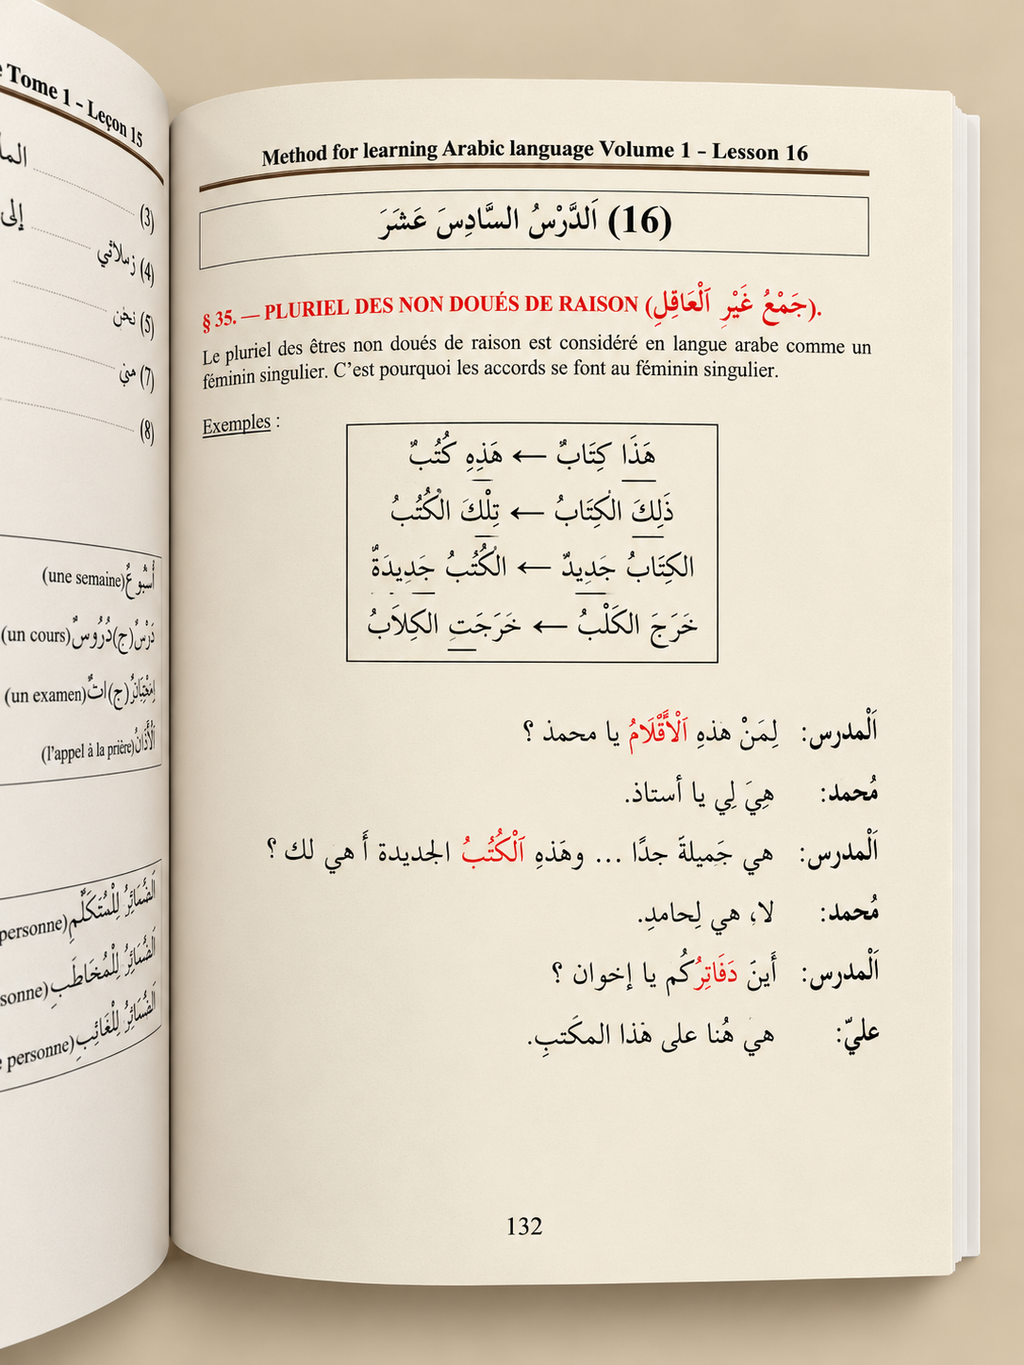 e Tome 1 - Leçon 15
(3)
إلى
(4) زملائي
(5) نحن
(7) مني
(8)
أُسْبُوعٌ (une semaine)
دَرْسٌ (ج) دُرُوسٌ (un cours)
(ج) اتٌ (un examen)
الْأَذَانُ (l'appel à la prière)
لِلْمُتَكَلِّمِ personne)
لِلْمُخَاطَبِ sonne)
لِلْغَائِبِ e personne)
Method for learning Arabic language Volume 1 - Lesson 16
(16) اَلدَّرْسُ السَّادِسَ عَشَرَ
§ 35. — PLURIEL DES NON DOUÉS DE RAISON (جَمْعُ غَيْرِ اَلْعَاقِلِ).
Le pluriel des êtres non doués de raison est considéré en langue arabe comme un
féminin singulier. C'est pourquoi les accords se font au féminin singulier.
Exemples :
هَذَا كِتَابٌ ← هَذِهِ كُتُبٌ
ذَلِكَ الْكِتَابُ ← تِلْكَ الْكُتُبُ
الكِتَابُ جَدِيدٌ ← الْكُتُبُ جَدِيدَةٌ
خَرَجَ الكَلْبُ ← خَرَجَتِ الكِلَابُ
اَلْمدرس: لِمَنْ هذهِ اَلْأَقْلَامُ يا محمذ ؟
مُحمد: هِيَ لِي يا أستاذ.
اَلْمدرس: هي جَمِيلةَ جدًا ... وهَذهِ اَلْكُتُبُ الجديدة أَ هي لك ؟
مُحمد: لا، هي لِحامدِ.
اَلْمدرس: أَينَ دَفَاتِرُكُم يا إخوان ؟
عليّ: هي هُنا على هٰذا المكَتبِ.
132